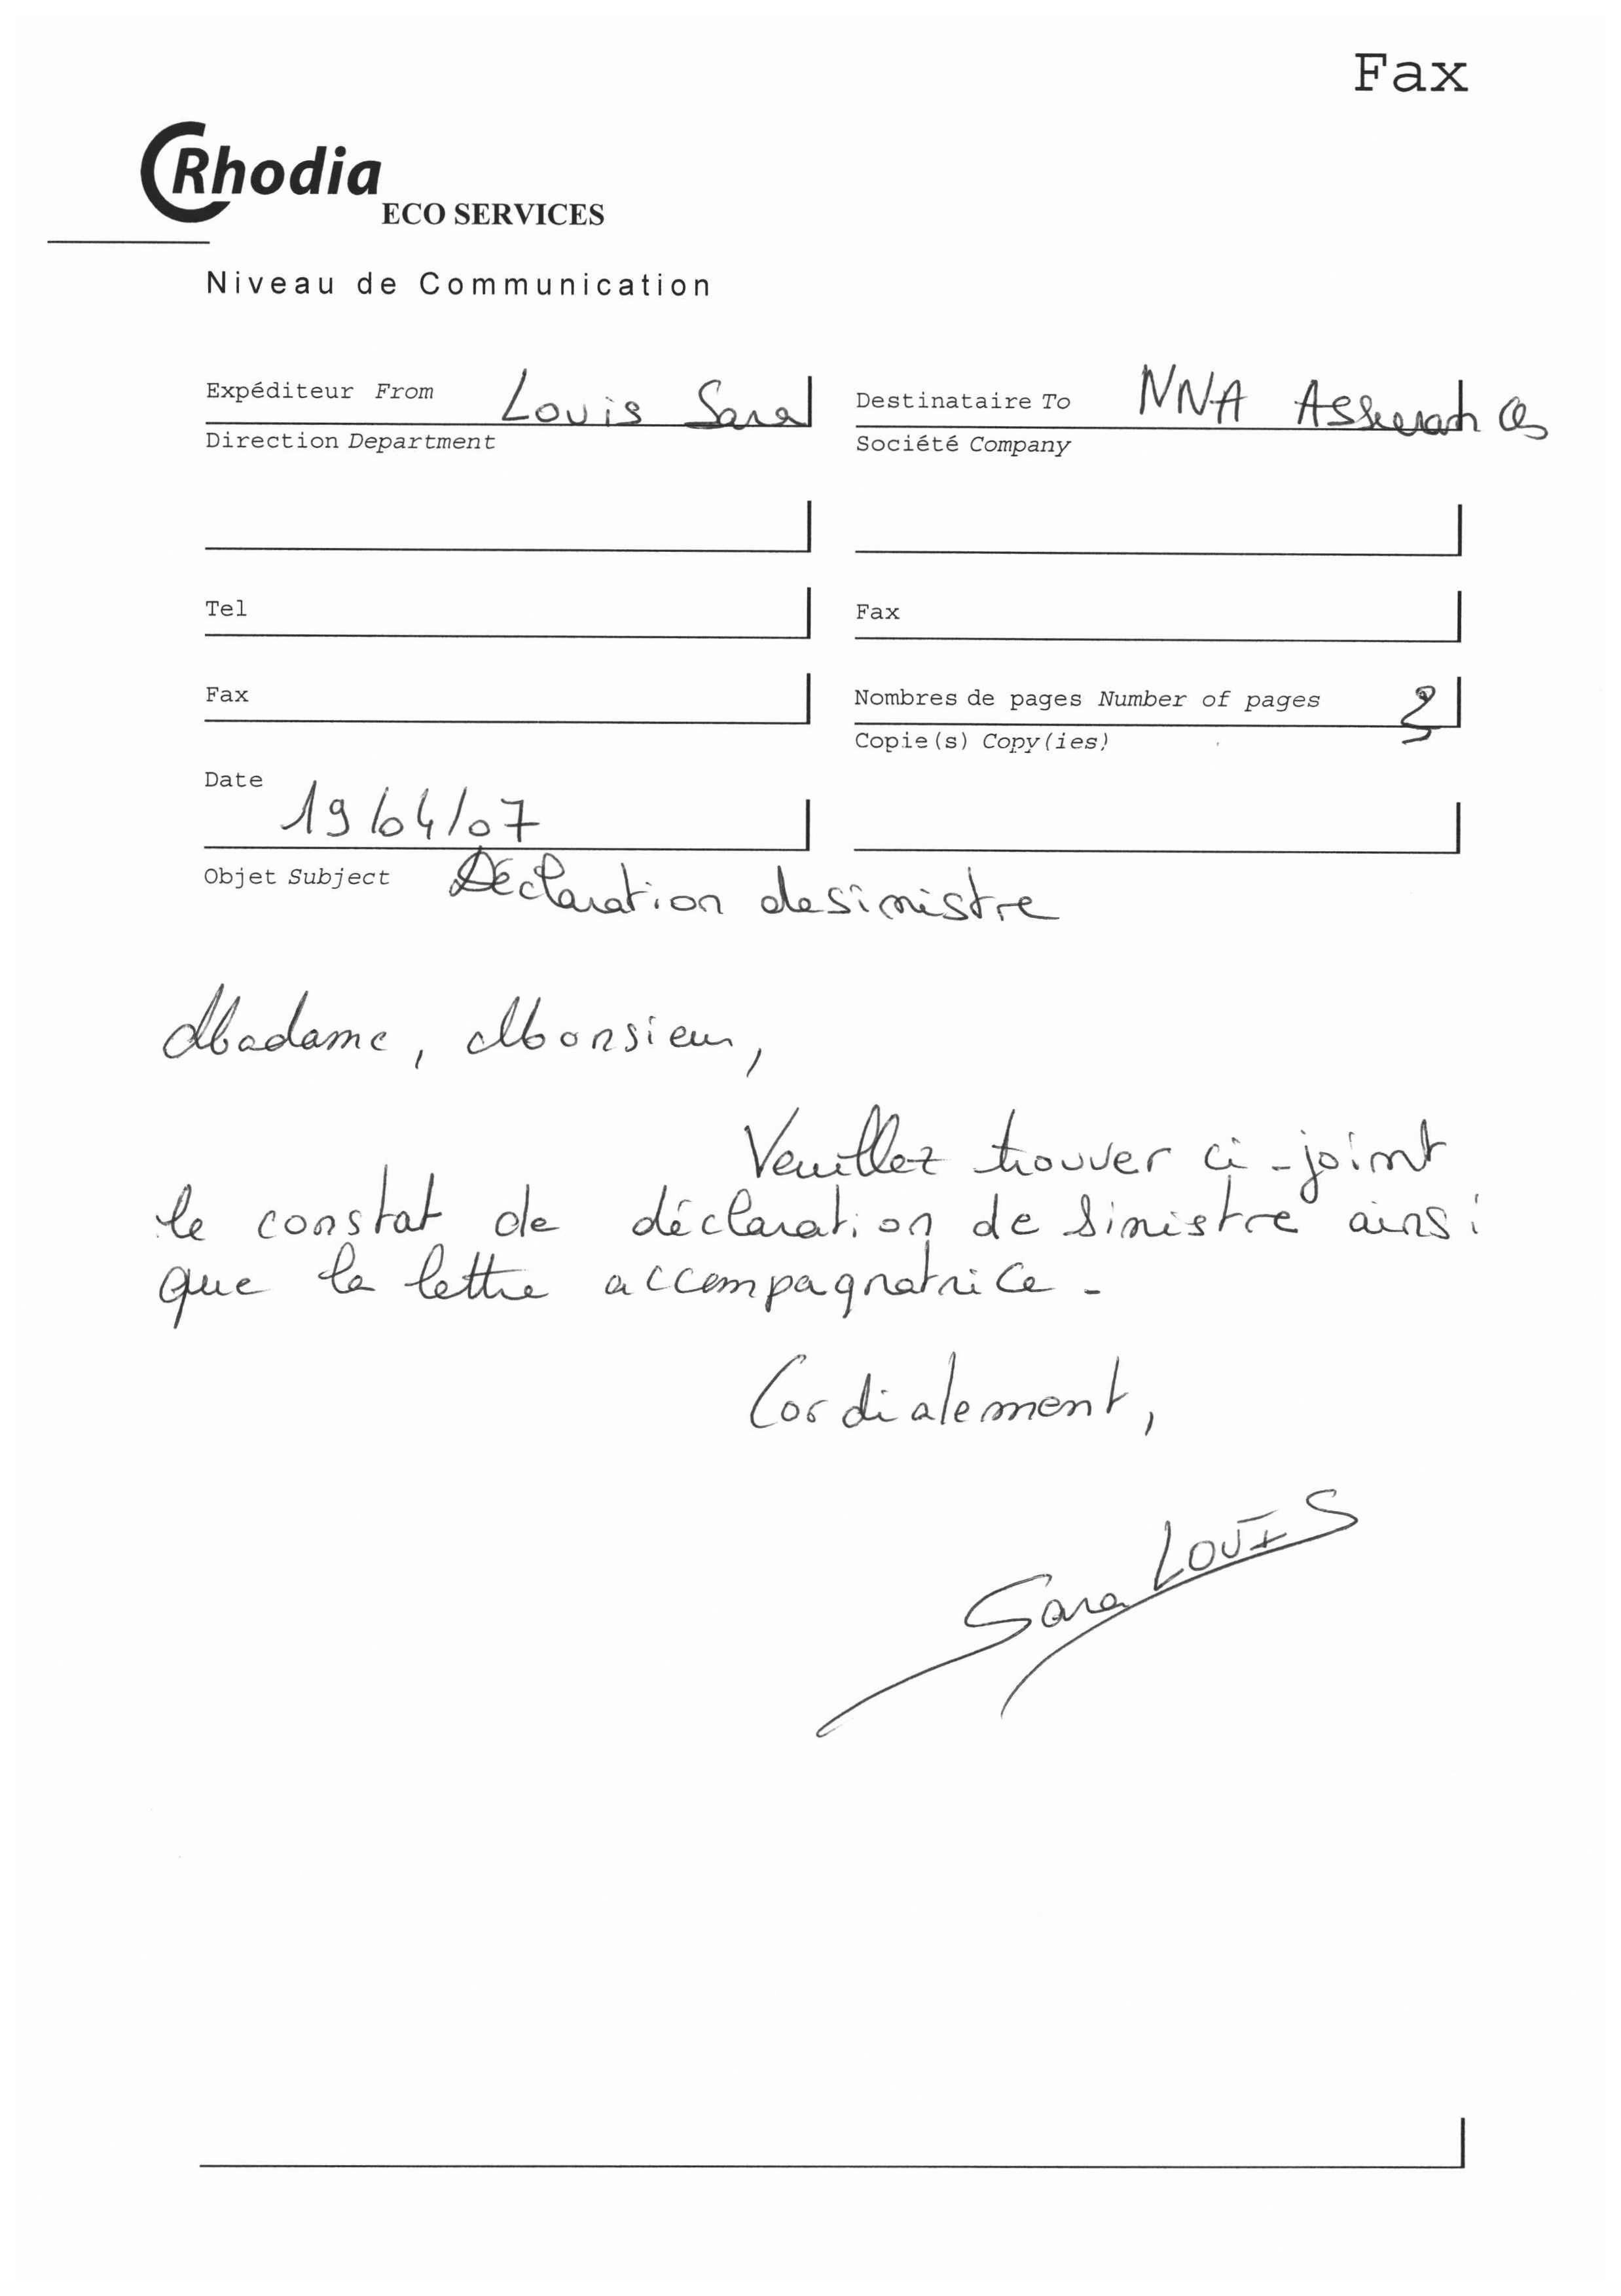 Fax
Rhodia
ECO SERVICES
Niveau de Communication
Expéditeur From Louis Sara
Destinataire To NNA Assurances
Direction Department
Société Company
Tel
Fax
Fax
Nombres de pages Number of pages
Copie(s) Copy(ies)
Date 19/04/07
Objet Subject Déclaration de sinistre
Madame, Monsieur,
Veuillez trouver ci-joint
le constat de déclaration de sinistre ainsi
que la lettre accompagnatrice.
Cordialement,
Sara LOUIS